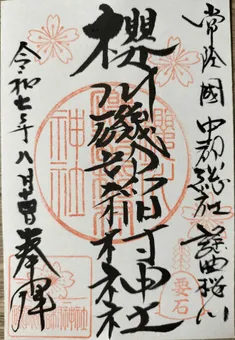 常陸國 中郡総社 謡曲桜川
要石
櫻川磯部稲村神社
神社
令和七年八月
奉拝